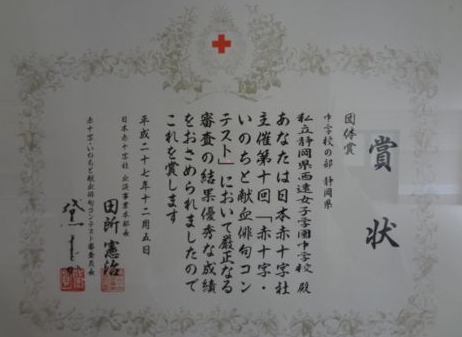 賞状
団体賞
中学校の部 静岡県
私立静岡県西遠女子学園中学校 殿
あなたは日本赤十字社
主催第十回「赤十字・
いのちと献血俳句コン
テスト」において厳正なる
審査の結果優秀な成績
をおさめられましたので
これを賞します
平成二十七年十二月五日
日本赤十字社 血液事業本部長
田所 憲治
赤十字・いのちと献血俳句コンテスト審査員長